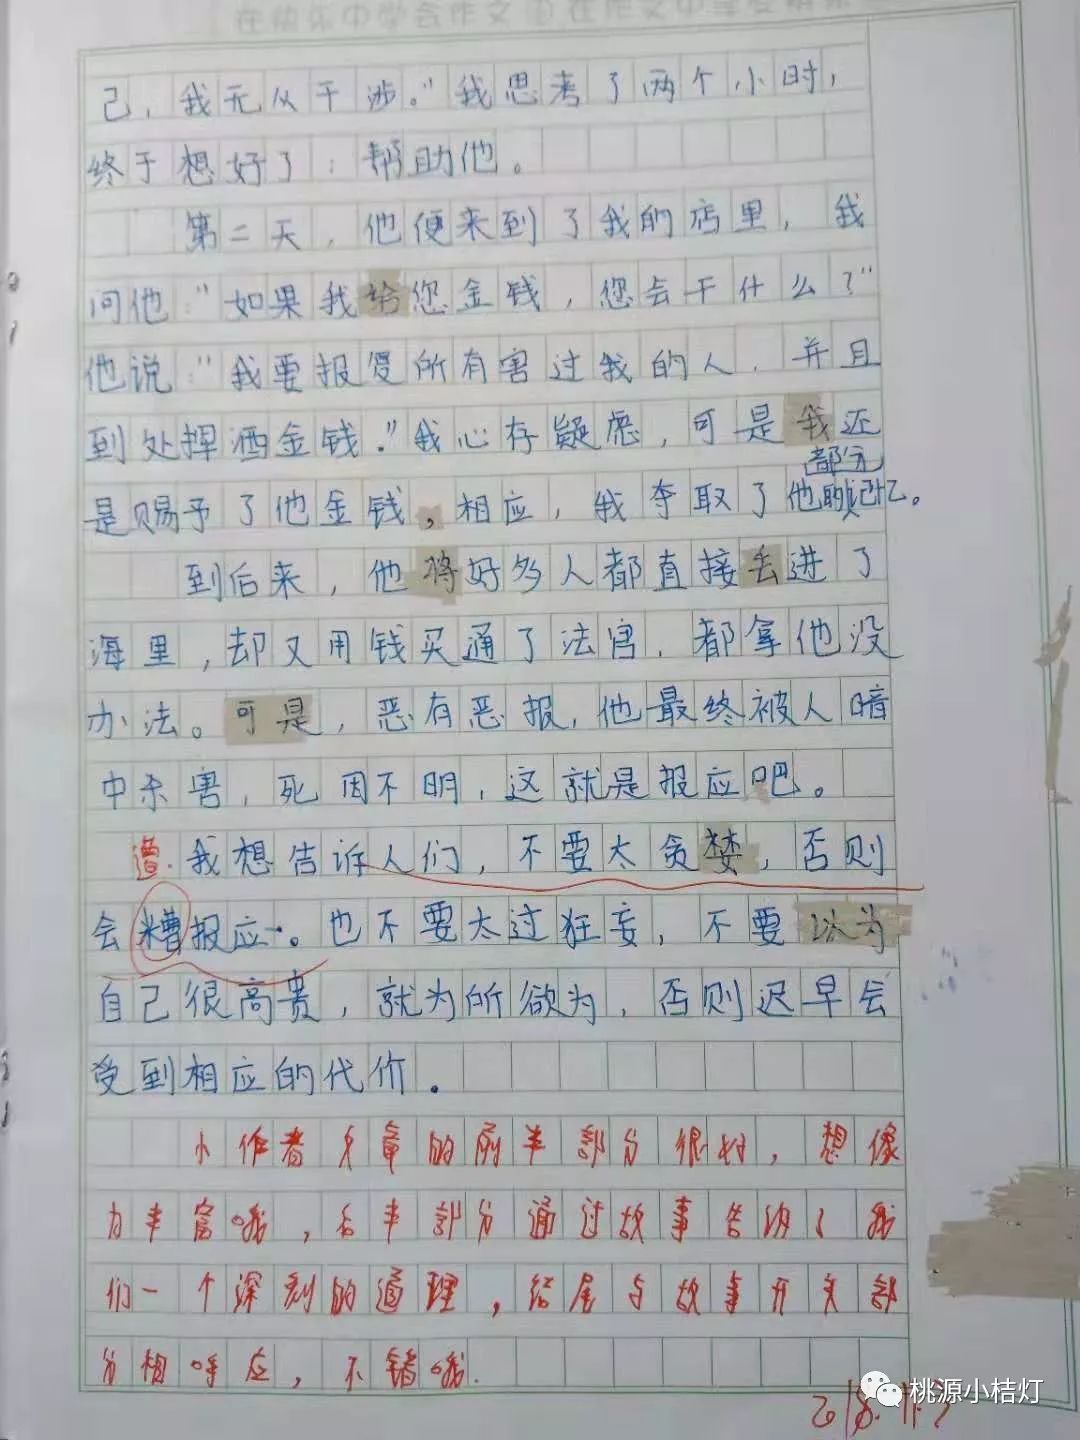 在快乐中学会作文 在作文中享受快乐
己，我无从干涉。"我思考了两个小时，
终于想好了：帮助他。
第二天，他便来到了我的店里，我
问他："如果我给您金钱，您会干什么？"
他说："我要报复所有害过我的人，并且
到处挥洒金钱。"我心存疑虑，可是我还
部分
是赐予了他金钱，相应，我夺取了他的记忆。
到后来，他将好多人都直接丢进了
海里，却又用钱买通了法官，都拿他没
办法。可是，恶有恶报，他最终被人暗
中杀害，死因不明，这就是报应吧。
遭 我想告诉人们，不要太贪婪，否则
会糟报应。也不要太过狂妄，不要以为
自己很高贵，就为所欲为，否则迟早会
受到相应的代价。
小作者文章的前半部分很好，想像
力丰富哦，后半部分通过故事告诉了我
们一个深刻的道理，结尾与故事开头部
分相呼应，不错哦.
桃源小桔灯